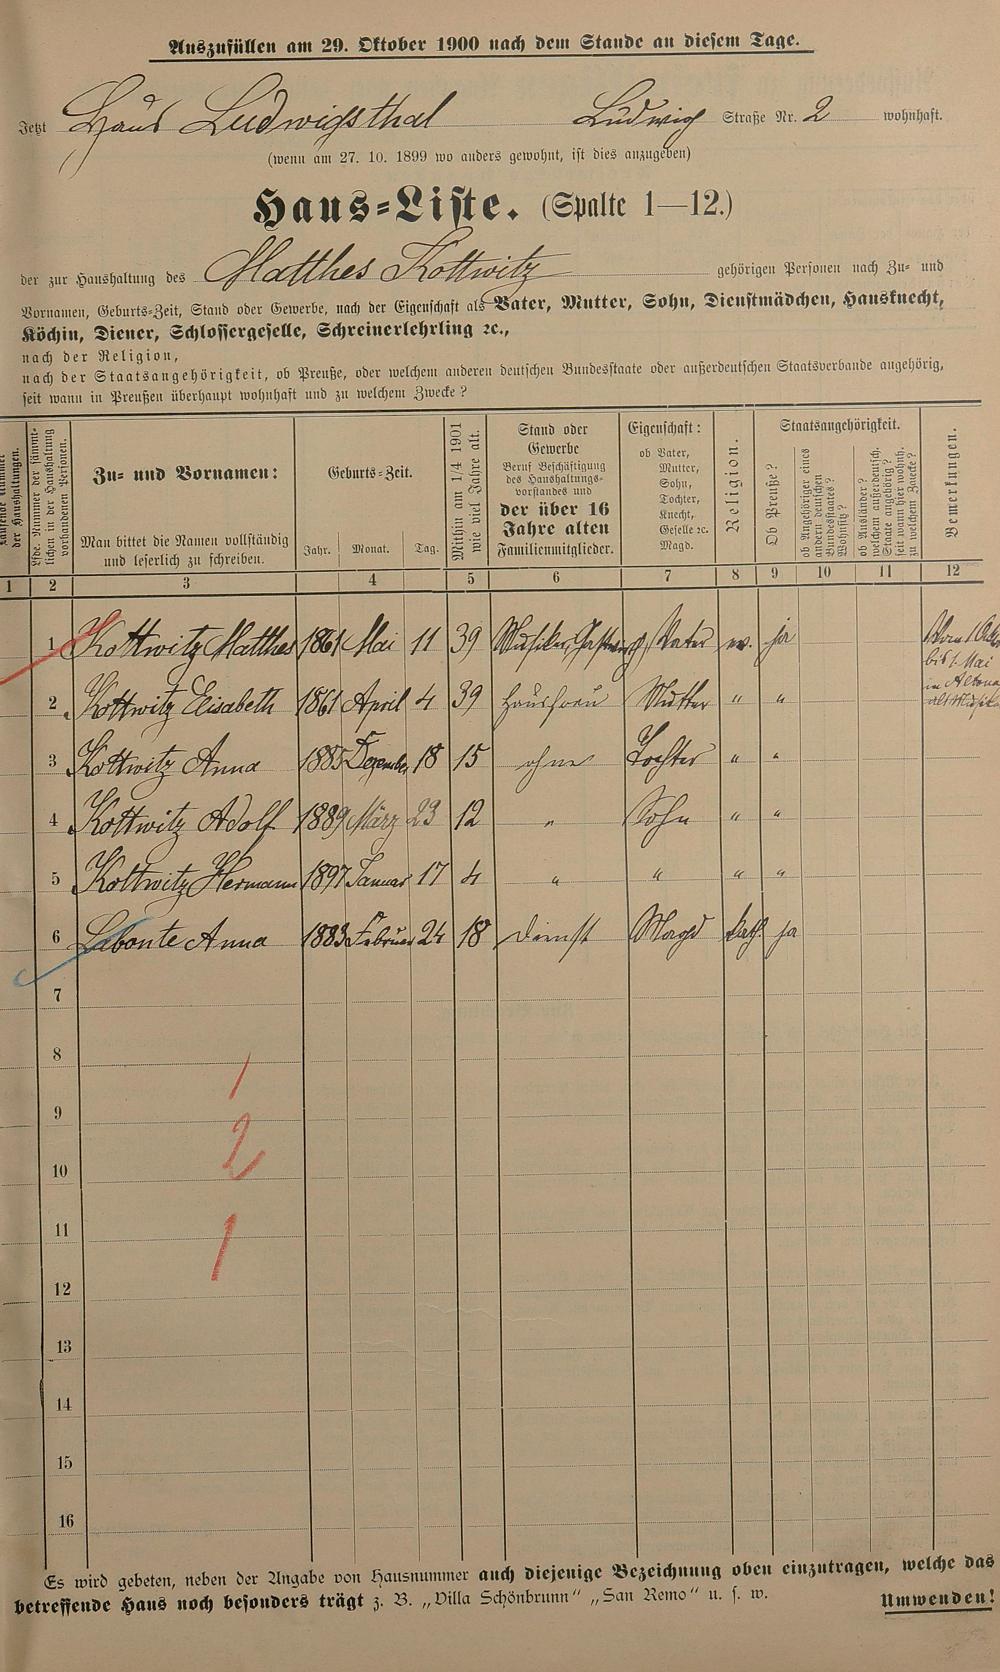 Auszufüllen am 29. Oktober 1900 nach dem Stande an diesem Tage.
Jetzt Haus Ludwigsthal Ludwig Straße Nr. 2 wohnhaft.
(wenn am 27. 10. 1899 wo anders gewohnt, ist dies anzugeben)
Haus-Liste. (Spalte 1—12.)
der zur Haushaltung des Matthes Kottwitz gehörigen Personen nach Zu- und
Vornamen, Geburts-Zeit, Stand oder Gewerbe, nach der Eigenschaft als Vater, Mutter, Sohn, Dienstmädchen, Hausknecht,
Köchin, Diener, Schlossergeselle, Schreinerlehrling ꝛc.,
nach der Religion,
nach der Staatsangehörigkeit, ob Preuße, oder welchem anderen deutschen Bundesstaate oder außerdeutschen Staatsverbande angehörig,
seit wann in Preußen überhaupt wohnhaft und zu welchem Zwecke?
Laufende Nummer
der Haushaltungen.
Lfde. Nummer der sämmt-
lichen in der Haushaltung
vorhandenen Personen.
Zu- und Vornamen:
Man bittet die Namen vollständig
und leserlich zu schreiben.
Geburts-Zeit.
Jahr. Monat. Tag.
Mithin am 1/4 1901
wie viel Jahre alt.
Stand oder
Gewerbe
Beruf Beschäftigung
des Haushaltungs-
vorstandes und
der über 16
Jahre alten
Familienmitglieder.
Eigenschaft:
ob Vater,
Mutter,
Sohn,
Tochter,
Knecht,
Geselle ꝛc.
Magd.
Religion.
Staatsangehörigkeit.
Ob Preuße?
ob Angehöriger eines
andern deutschen
Bundesstaates?
Wohnsitz?
ob Ausländer?
welchem außerdeutsch.
Staate angehörig?
seit wann hier wohnh.
zu welchem Zwecke?
Bemerkungen.
1 2 3 4 5 6 7 8 9 10 11 12
1 Kottwitz Matthes 1861 Mai 11 39 Musiker, Vater ev. ja
bis 1. Mai
in Altona
als Musik
2 Kottwitz Elisabeth 1861 April 4 39 Hausfrau Mutter " "
3 Kottwitz Anna 1885 Dezember 18 15 ohne Tochter " "
4 Kottwitz Adolf 1889 März 23 12 " Sohn " "
5 Kottwitz Hermann 1897 Januar 17 4 " " " "
6 Labonte Anna 1883 Februar 24 18 Dienst Magd kath. ja
7
8
1
9
2
10
11
1
12
13
14
15
16
Es wird gebeten, neben der Angabe von Hausnummer auch diejenige Bezeichnung oben einzutragen, welche das
betreffende Haus noch besonders trägt z. B. „Villa Schönbrunn" „San Remo" u. s. w. Umwenden!